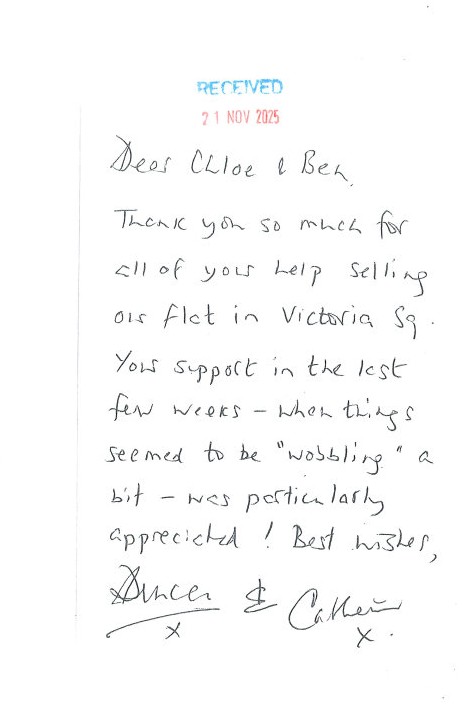 RECEIVED
21 NOV 2025
Dear Chloe & Ben,
Thank you so much for
all of your help selling
our flat in Victoria Sq.
Your support in the last
few weeks – when things
seemed to be "wobbling" a
bit – was particularly
appreciated! Best wishes,
Duncan & Catherine
x x.